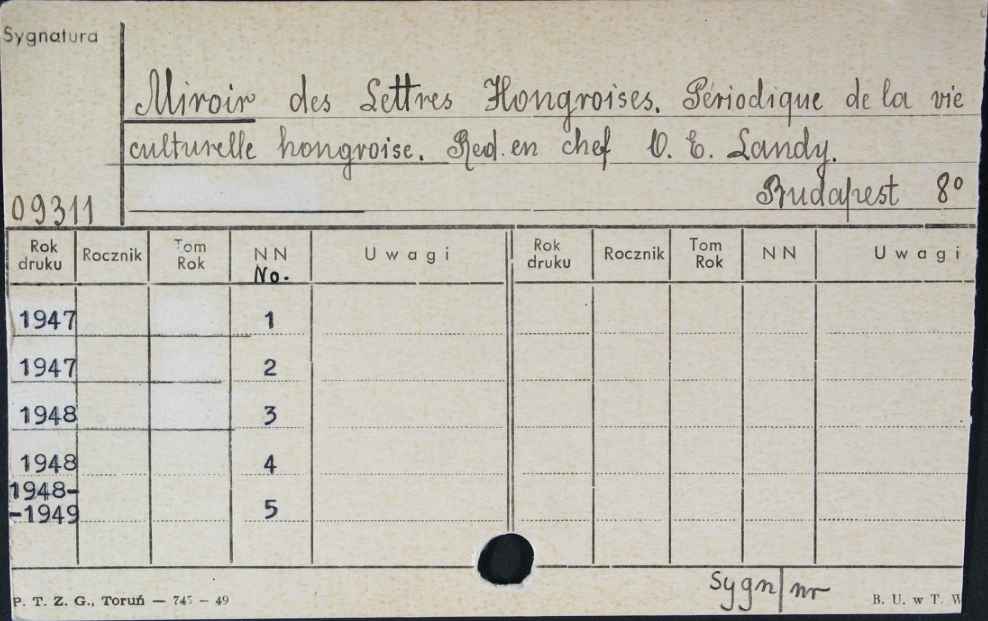 Sygnatura
Miroir des Lettres Hongroises. Périodique de la vie
culturelle hongroise. Red. en chef O. E. Landy.
Budapest 8°
09311
Rok druku Rocznik Tom Rok NN No. Uwagi Rok druku Rocznik Tom Rok NN Uwagi
1947 1
1947 2
1948 3
1948 4
1948-
-1949 5
Sygn/nr
P. T. Z. G., Toruń — 745 — 49 B. U. w T. W